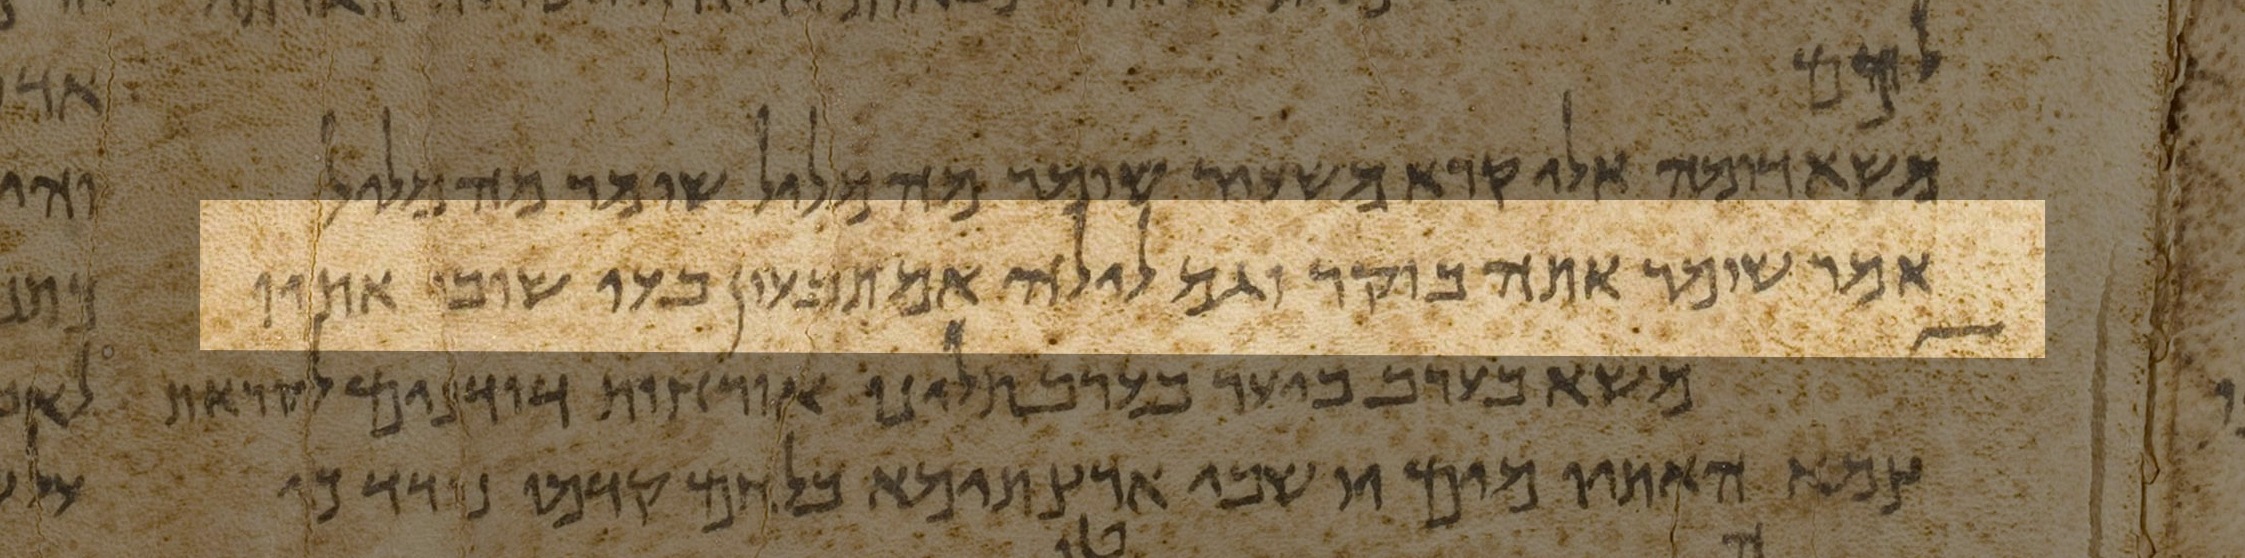 לכם
משא דומה אלי קרא משעיר שומר מה מליל שומר מה מליל
אמר שומר אתה בוקר וגם לילה אם תבעון בעו שובו אתיו
משא בערב ביער בערב תלינו אורחות דודנים לקראת
צמא האתיו מים ישבי ארץ תימא בלחם קדמו נודד כי